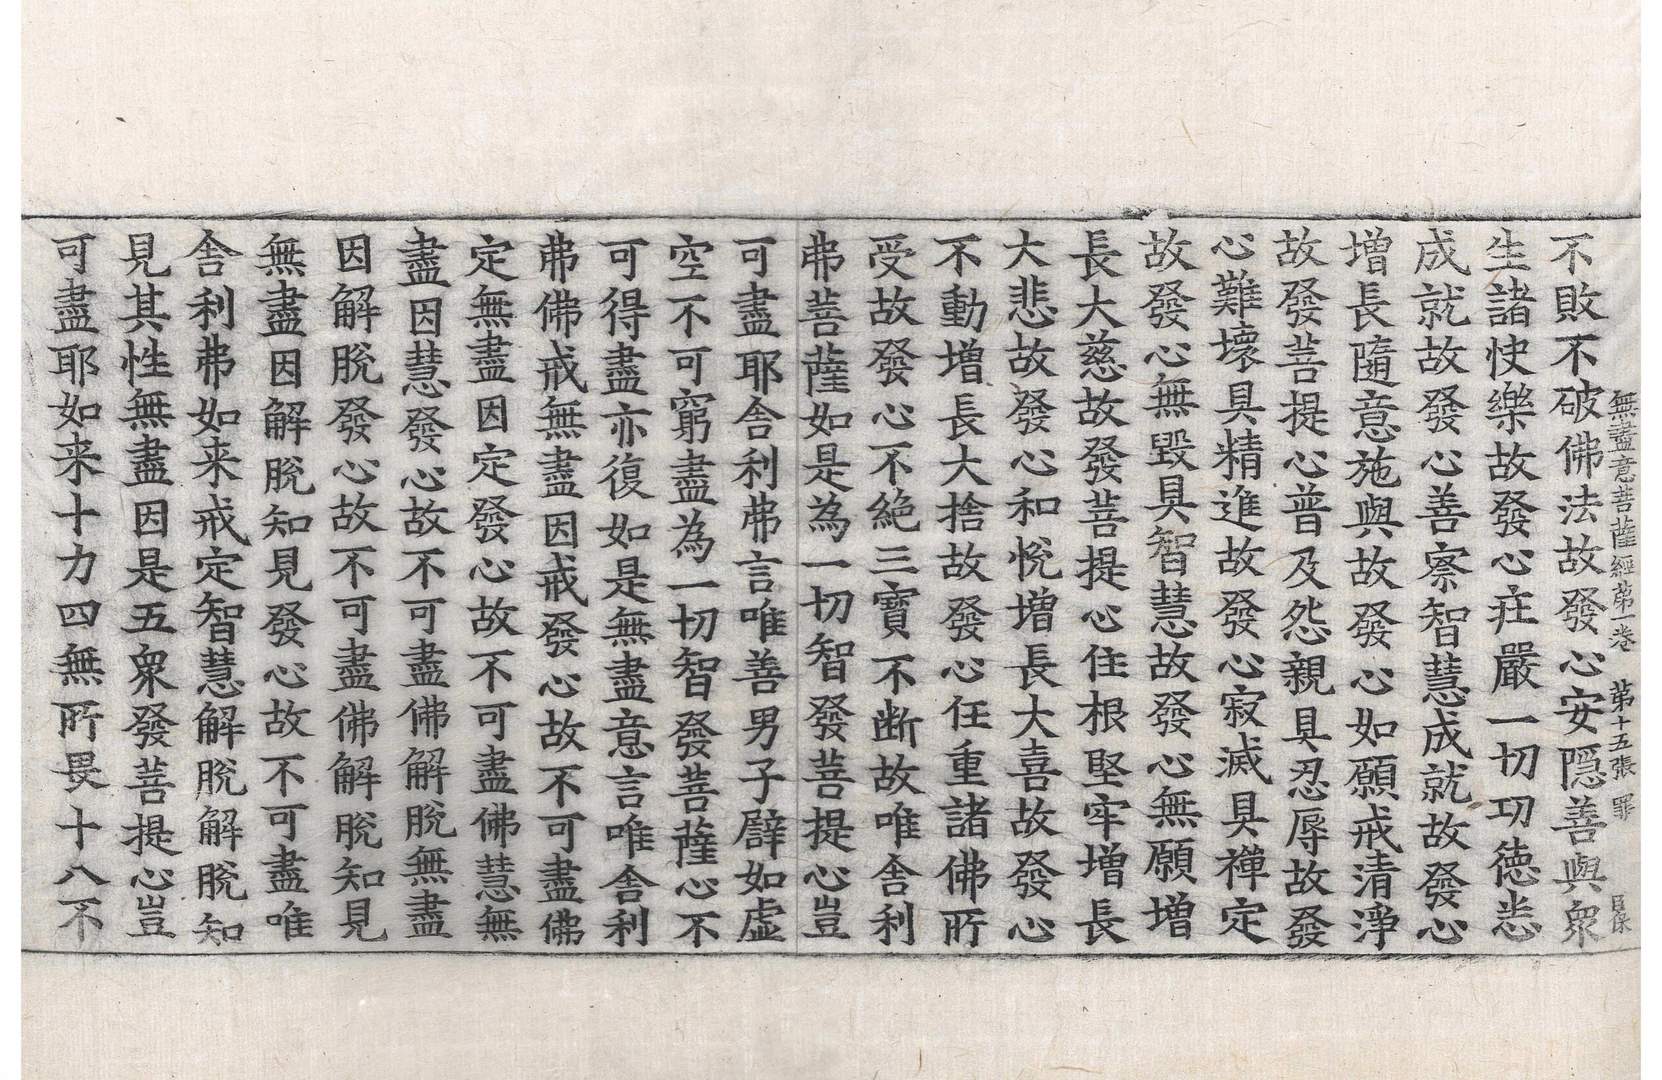 無盡意菩薩經第一卷 第十五張 罪
不敗不破佛法故發心安隱善與衆
生諸快樂故發心庄嚴一切功德悉
成就故發心善察智慧成就故發心
增長隨意施與故發心如願戒清淨
故發菩提心普及怨親具忍辱故發
心難壞具精進故發心寂滅具禪定
故發心無毀具智慧故發心無願增
長大慈故發菩提心住根堅牢增長
大悲故發心和悅增長大喜故發心
不動增長大捨故發心任重諸佛所
受故發心不絕三寶不断故唯舍利
弗菩薩如是為一切智發菩提心豈
可盡耶舍利弗言唯善男子譬如虛
空不可窮盡為一切智發菩薩心不
可得盡亦復如是無盡意言唯舍利
弗佛戒無盡因戒發心故不可盡佛
定無盡因定發心故不可盡佛慧無
盡因慧發心故不可盡佛解脫無盡
因解脫發心故不可盡佛解脫知見
無盡因解脫知見發心故不可盡唯
舍利弗如来戒定智慧解脫解脫知
見其性無盡因是五衆發菩提心豈
可盡耶如来十力四無所畏十八不